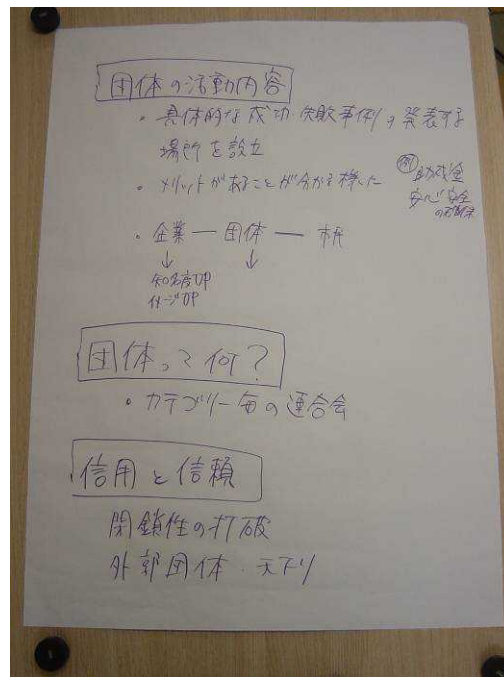 団体の活動内容
・具体的な成功・失敗事例の発表する
場所を設立
・メリットがあることが分かる様に
例 助成金
安心安全
・企業 — 団体 — 市民
↓ ↓
知名度UP
イメージUP
団体って何？
・カテゴリー毎の連合会
信用と信頼
閉鎖性の打破
外郭団体・天下り